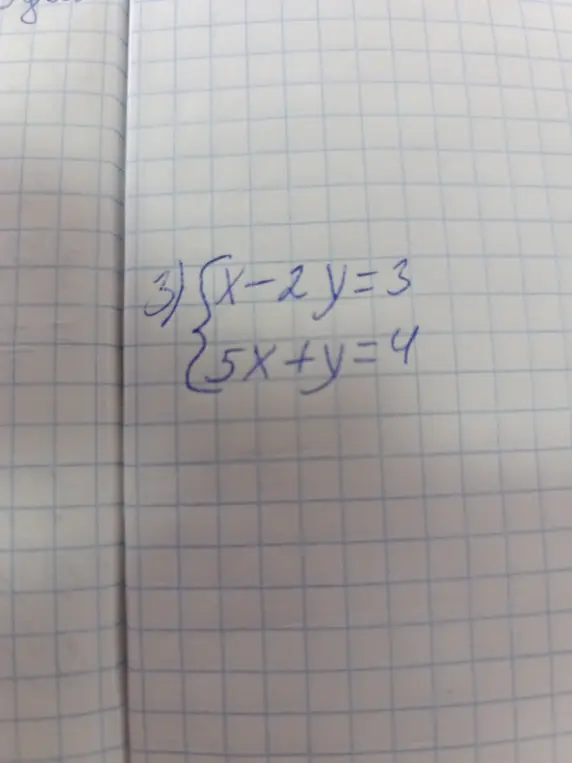 3) { x - 2y = 3
5x + y = 4